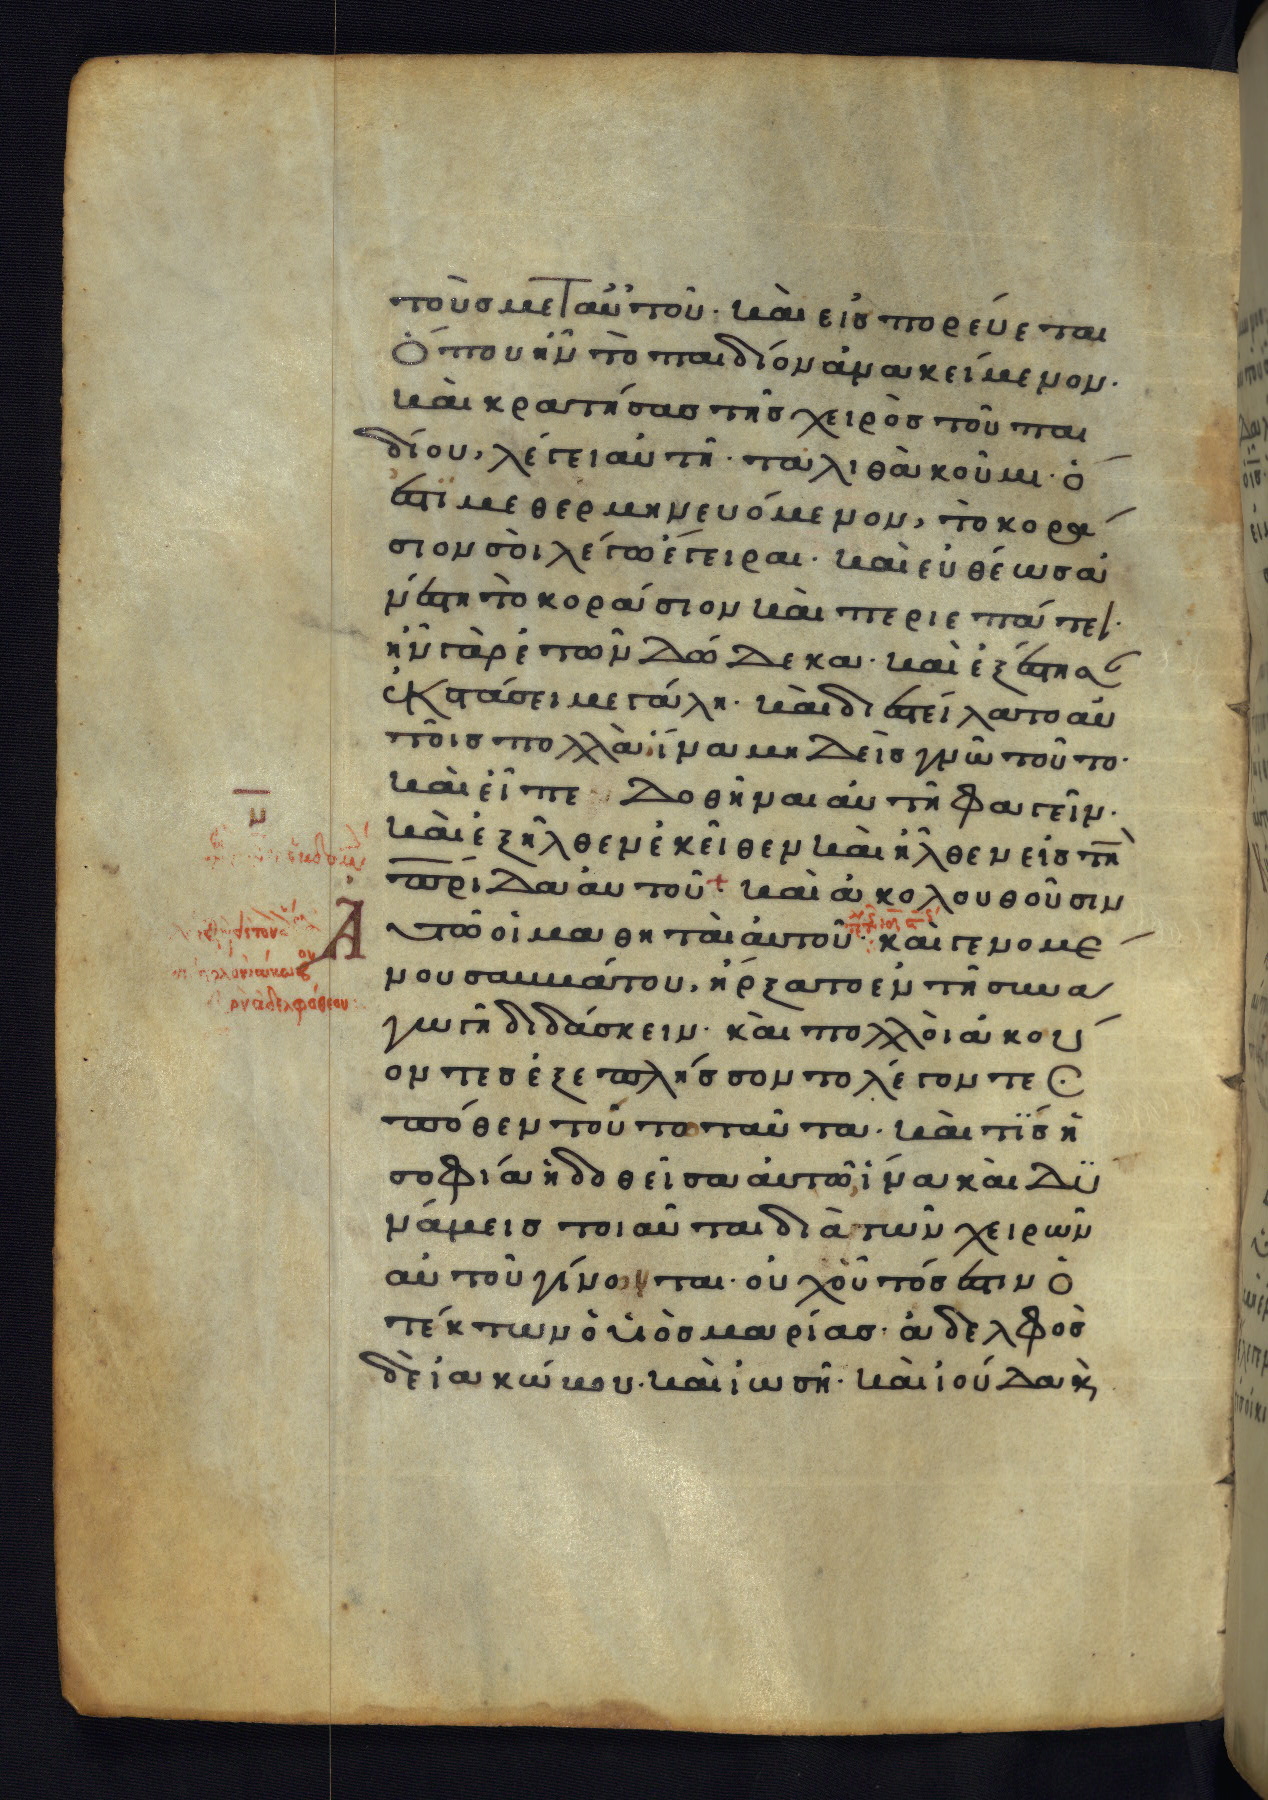 τοὺσ μετ αὐτοῦ· καὶ εἰσπορεύεται
ὅπου ἦν τὸ παιδίον ἀνακείμενον·
καὶ κρατήσασ τῆσ χειρὸσ τοῦ παι
δίου, λέγει αὐτῆ· ταλιθὰ κοῦμι· ὅ
ἐστὶ μεθερμηνευόμενον, τὸ κορά
σιον σὸι λέγω ἔγειραι· καὶ εὐθέωσ ἀ
νέστη τὸ κοράσιον καὶ περιεπάτει·
ἦν γὰρ ἐτῶν δώδεκα· καὶ ἐξέστησ
ἐκστάσει μεγάλη· καὶ διεστείλατο αὐ
τοῖσ πολλὰ ἵνα μηδεὶσ γνῶ τοῦτο·
καὶ εἶπε δοθῆναι αὐτῆ φαγεῖν·
καὶ ἐξῆλθεν ἐκεῖθεν καὶ ἦλθεν εἰσ τὴ
πρίδα αὐτοῦ + καὶ ἀκολουθοῦσιν
Αὐτῶ οἱ μαθηταὶ αὐτοῦ· καὶ γενομέ
νου σαββάτου, ἤρξατο ἐν τῆ συνα
γωγῆ διδάσκειν· καὶ πολλὸι ἀκού
οντεσ ἐξεπλήσσοντο λέγοντεσ·
πόθεν τοῦτο ταῦτα· καὶ τΐσ ἡ
σοφία ἡ δοθεῖσα αὐτῶ ἵνα καὶ δϋ
νάμεισ τοιαῦται διὰ τῶν χειρῶν
αὐτοῦ γίνονται· οὐχ οὗτόσ ἐστιν ὁ
τέκτων ὁ ὑιὸσ μαρίασ· ἀδελφὸσ
δὲ ἰακώβου· καὶ ἰωσῆ· καὶ ἰούδα κ
μ